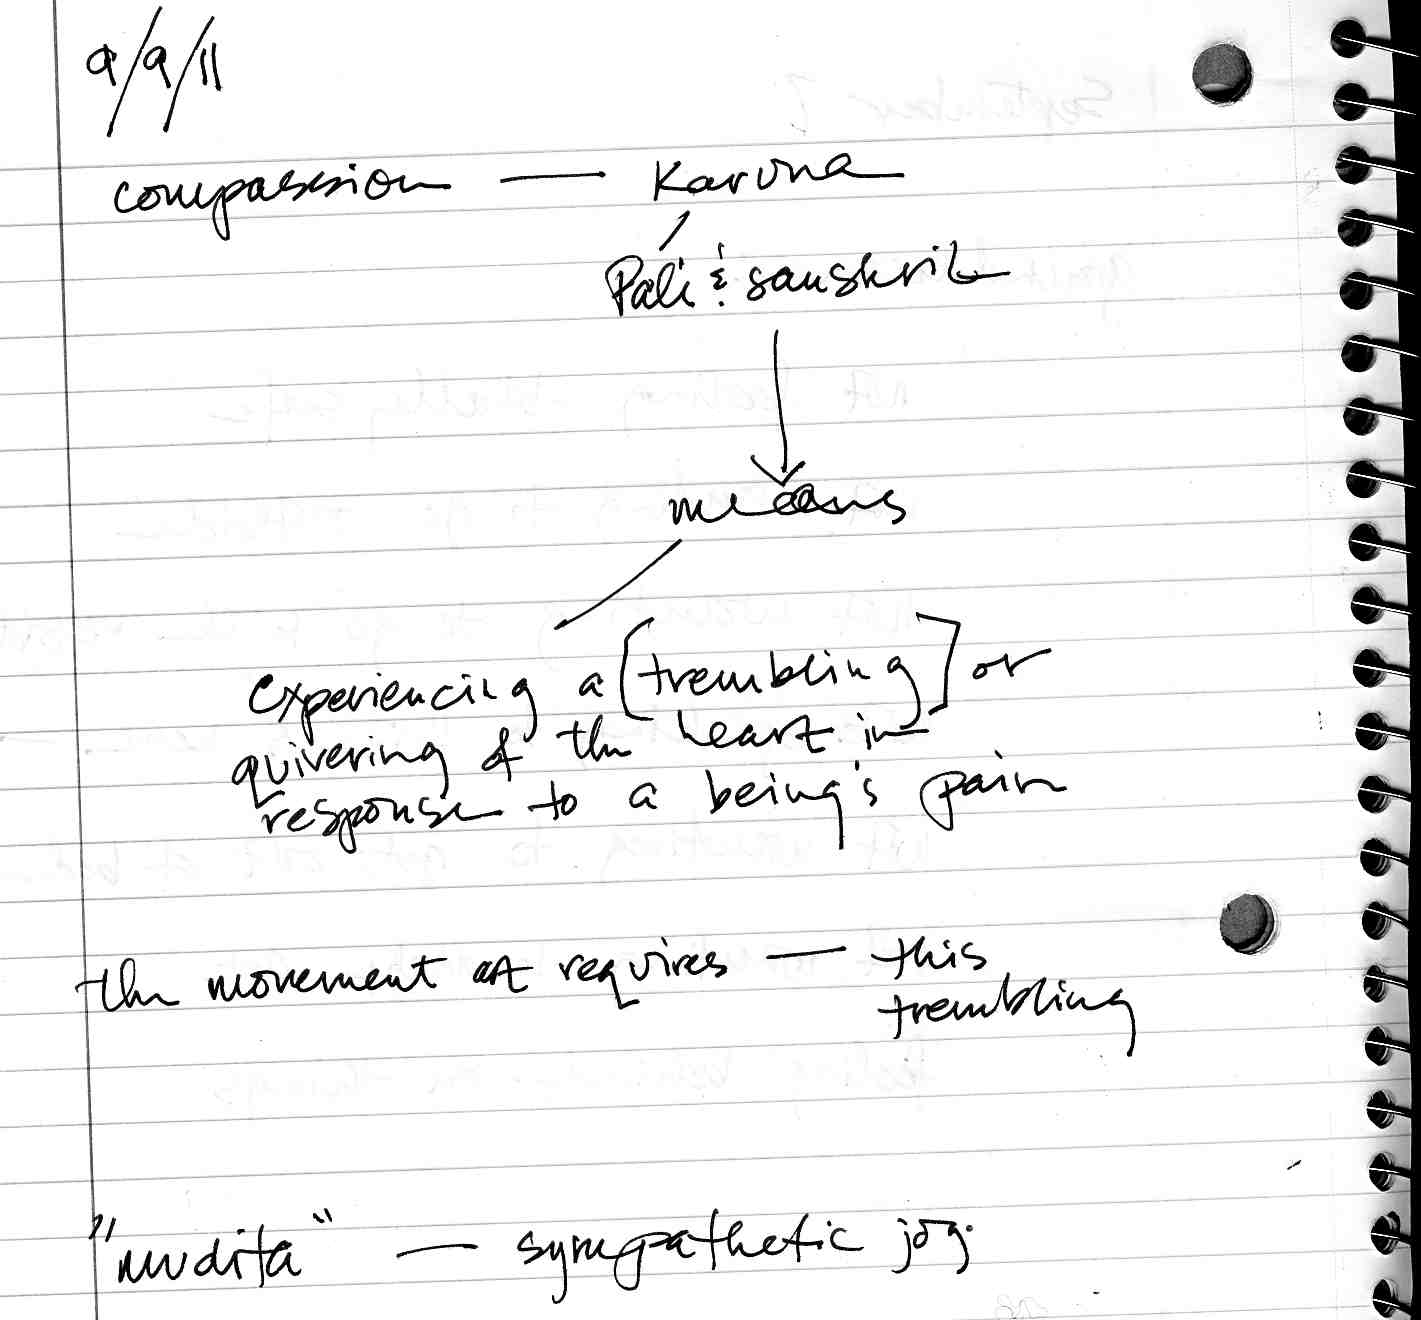 9/9/11
compassion — Karuna
Pali & sanskrit
means
experiencing a [trembling] or
quivering of the heart in
response to a being's pain
the movement art requires — this
trembling
"mudita" — sympathetic joy.